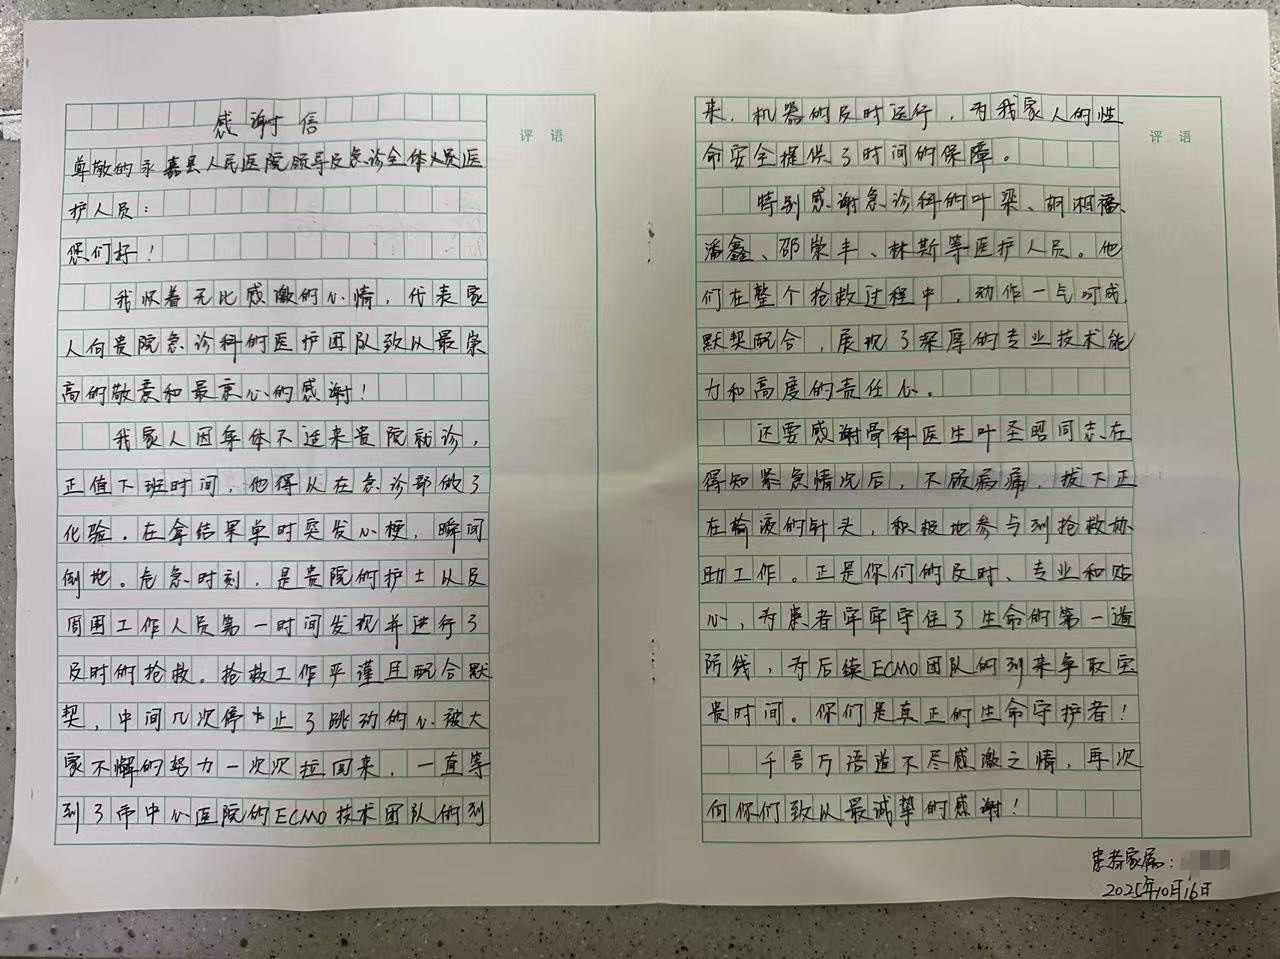 感谢信
评语
尊敬的永嘉县人民医院领导及急诊全体人员医
护人员：
您们好！
我怀着无比感激的心情，代表家
人向贵院急诊科的医护团队致以最崇
高的敬意和最衷心的感谢！
我家人因身体不适来贵院就诊，
正值下班时间，他得以在急诊部做了
化验。在拿结果单时突发心梗，瞬间
倒地。危急时刻，是贵院的护士以及
周围工作人员第一时间发现并进行了
及时的抢救。抢救工作严谨且配合默
契，中间几次停止了跳动的心被大
家不懈的努力一次次拉回来，一直等
到了市中心医院的ECMO技术团队的到
来，机器的及时运行，为我家人的性
评语
命安全提供了时间的保障。
特别感谢急诊科的叶梁、胡湘福、
潘鑫、邵崇丰、林斯等医护人员。他
们在整个抢救过程中，动作一气呵成，
默契配合，展现了深厚的专业技术能
力和高度的责任心。
还要感谢骨科医生叶圣昭同志在
得知紧急情况后，不顾病痛，拔下正
在输液的针头，积极地参与到抢救协
助工作。正是你们的及时、专业和贴
心，为患者牢牢守住了生命的第一道
防线，为后续ECMO团队的到来争取宝
贵时间。你们是真正的生命守护者！
千言万语道不尽感激之情，再次
向你们致以最诚挚的感谢！
患者家属：
2025年10月16日